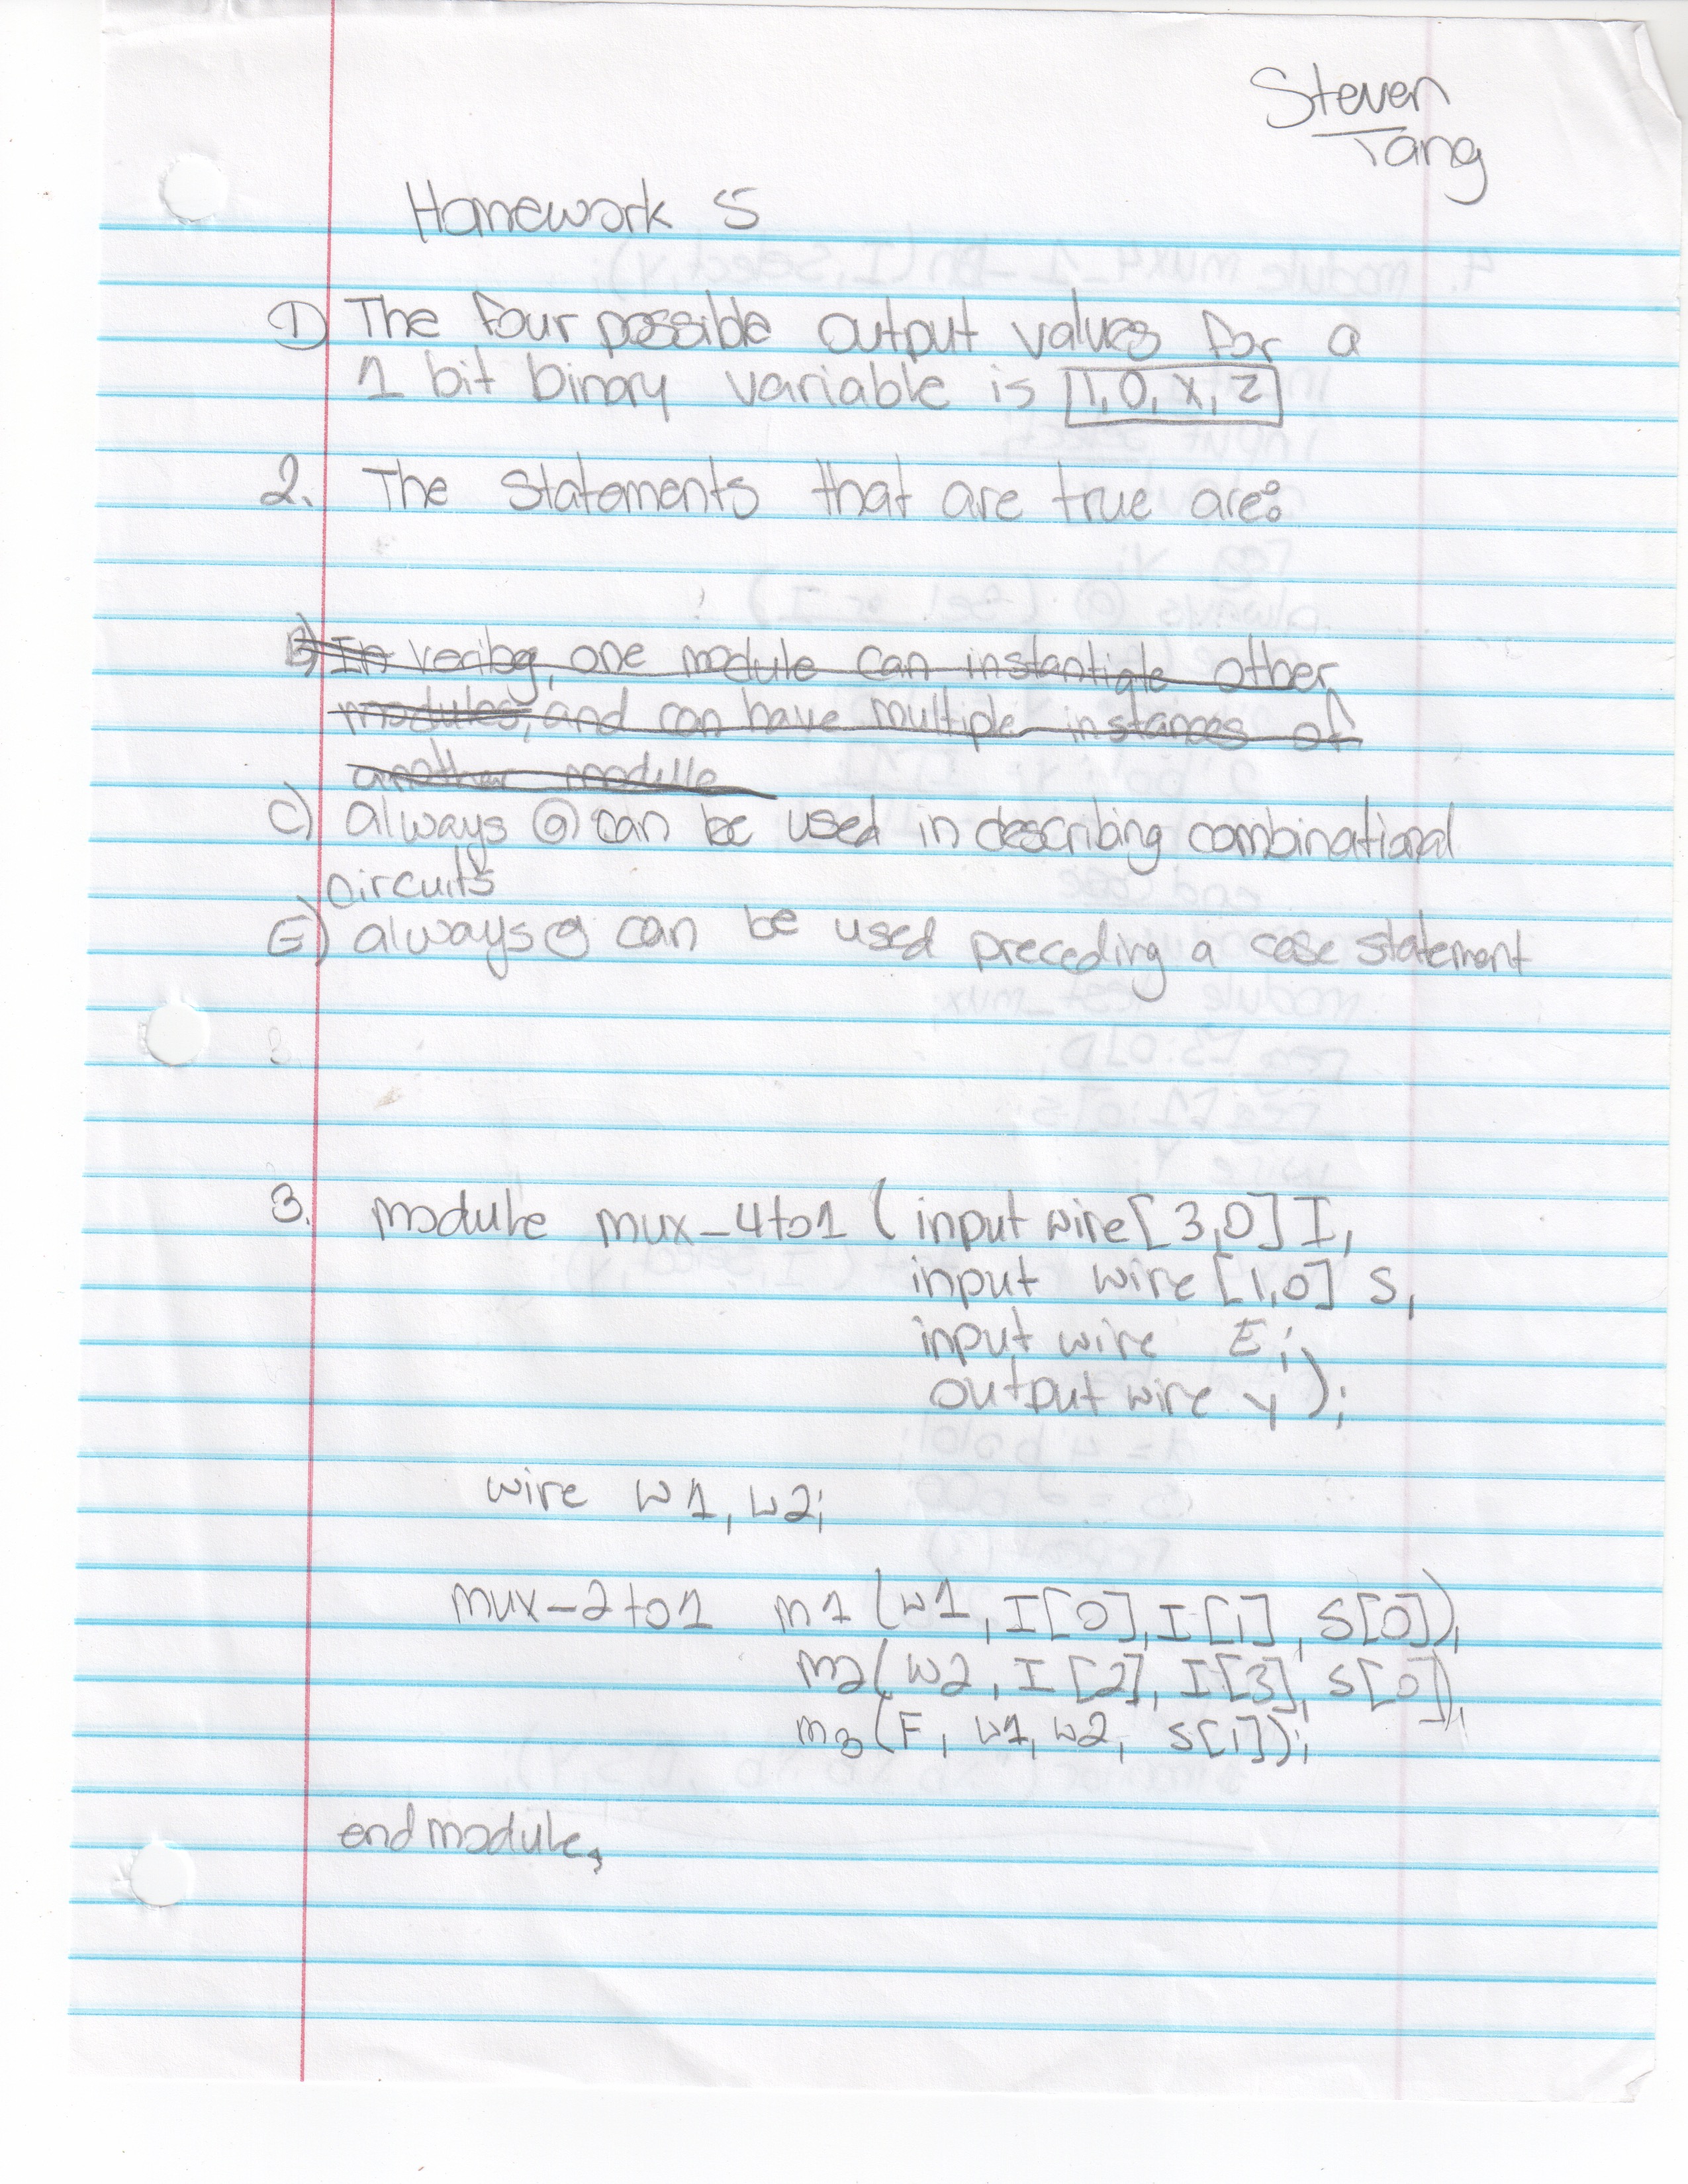 Steven
Tang
Homework 5
1) The four possible output values for a
1 bit binary variable is 1, 0, x, z
2. The statements that are true are:
B) In verilog, one module can instantiate other
modules, and can have multiple instances of
another module
C) always @ can be used in describing combinational
circuits
E) always @ can be used preceding a case statement
3. module mux_4to1 (input wire [3,0] I,
input wire [1,0] S,
input wire E;
output wire y);
wire w1, w2;
mux_2to1 m1 (w1, I[0], I[1], S[0]),
m2(w2, I[2], I[3], S[0]),
m3(F, w1, w2, S[1]);
endmodule,